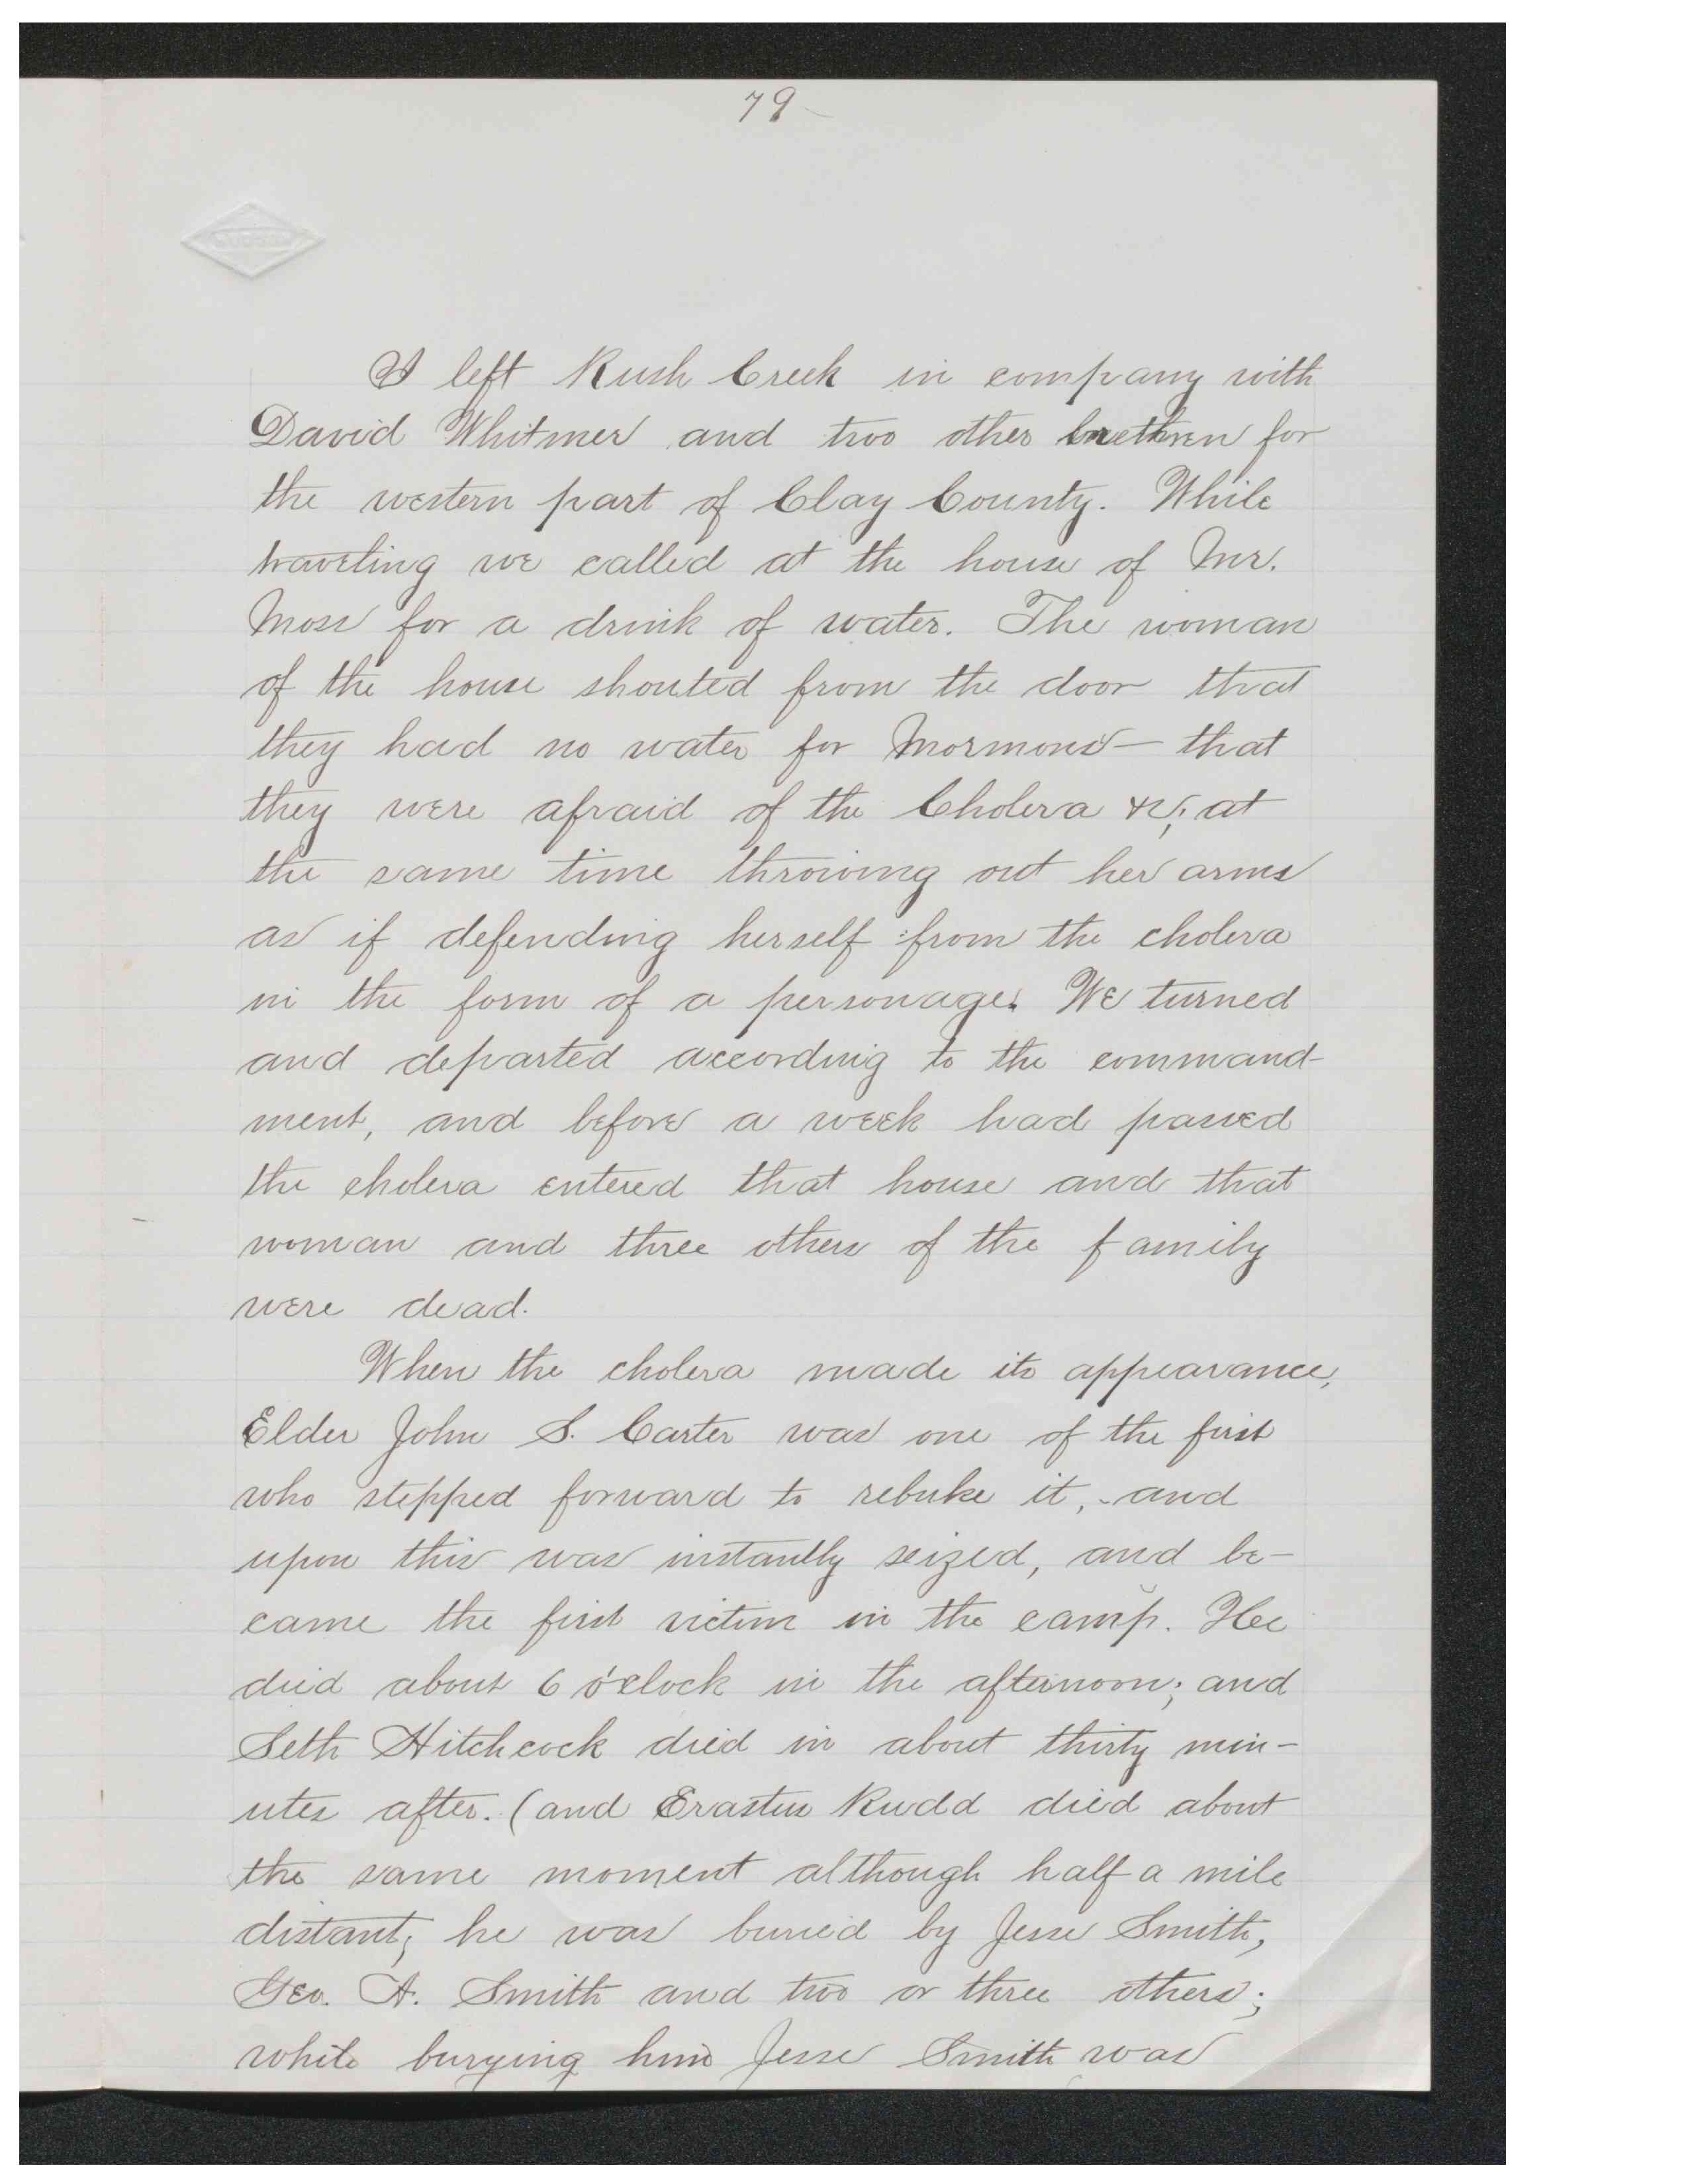 79
I left Rush Creek in company with
David Whitmer and two other brethren for
the western part of Clay County. While
traveling we called at the house of Mr.
Moss for a drink of water. The woman
of the house shouted from the door that
they had no water for Mormons— that
they were afraid of the Cholera &c; at
the same time throwing out her arms
as if defending herself from the cholera
in the form of a personage. We turned
and departed according to the command-
ment, and before a week had passed
the cholera entered that house and that
woman and three others of the family
were dead.
When the cholera made its appearance,
Elder John S. Carter was one of the first
who stepped forward to rebuke it, and
upon this was instantly seized, and be-
came the first victim in the camp. Hee
died about 6 o'clock in the afternoon; and
Seth Hitchcock died in about thirty min-
utes after. (and Erastus Rudd died about
the same moment although half a mile
distant; he was buried by Jesse Smith,
Geo. A. Smith and two or three others;
while burying him Jesse Smith was